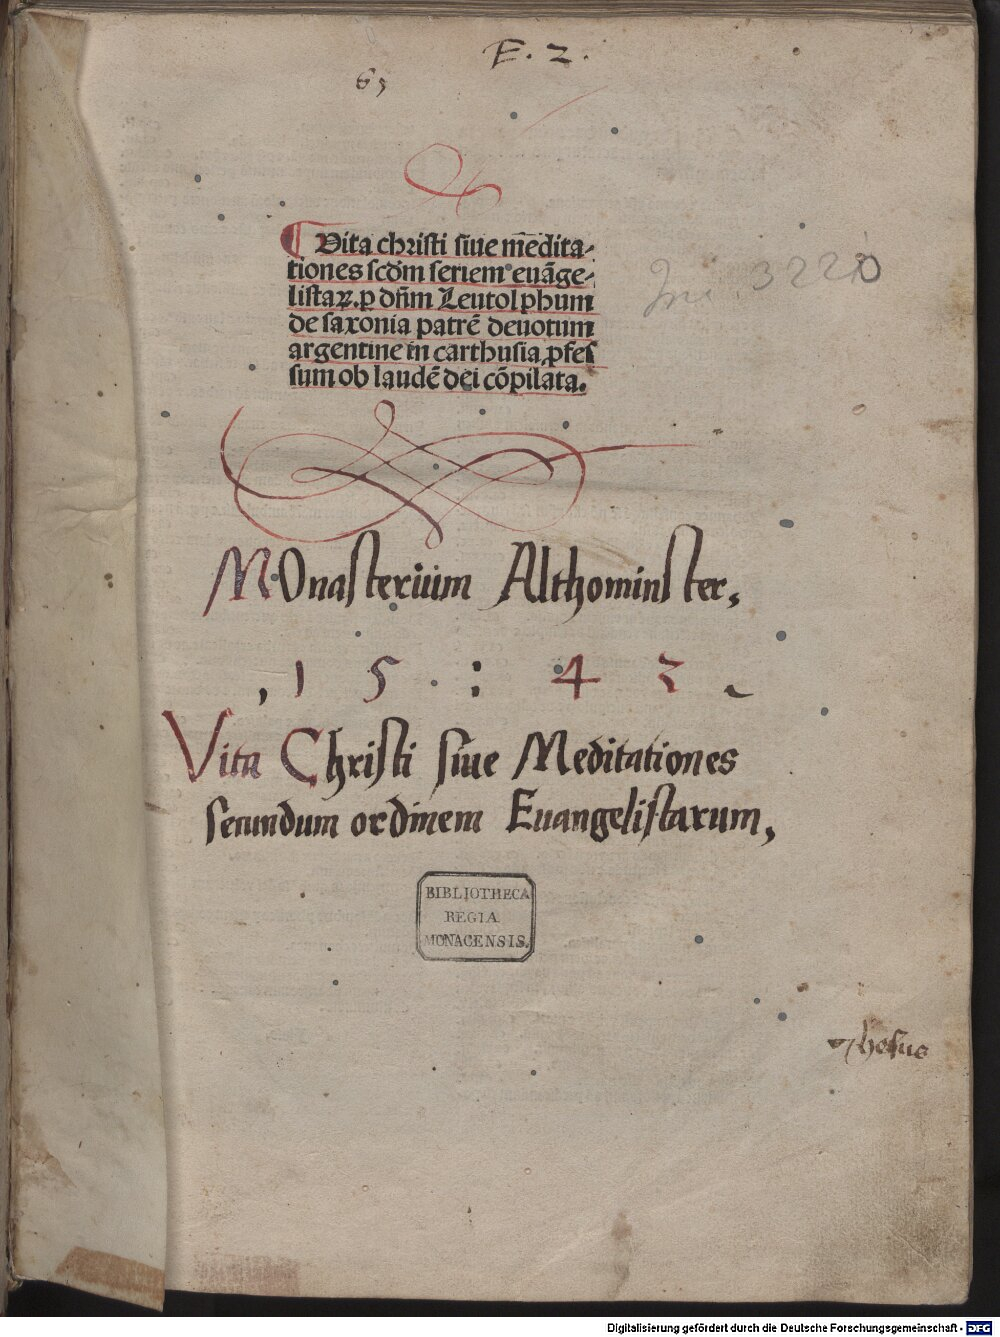 E. 2.
65
Vita christi siue medita-
tiones scdm seriem euāge-
listaꝝ. ꝑ dn̄m Leutolphum
de saxonia patrē deuotum
argentine in carthusia ꝓfes
sum ob laudē dei cōpilata.
Inc 3220
MOnasterium Althominster,
, 1 5 : 4 3
Vita Christi siue Meditationes
secundum ordinem Euangelistarum,
BIBLIOTHECA
REGIA
MONACENSIS.
Jhesus
Digitalisierung gefördert durch die Deutsche Forschungsgemeinschaft - DFG